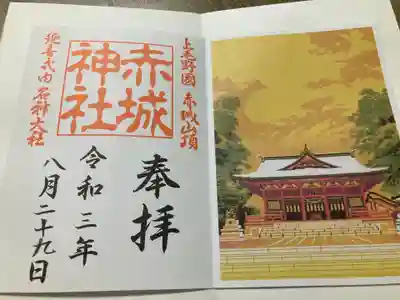 上毛野國 赤城山頂
赤城
神社
延喜式内 名神大社
奉拝
令和三年
八月二十九日